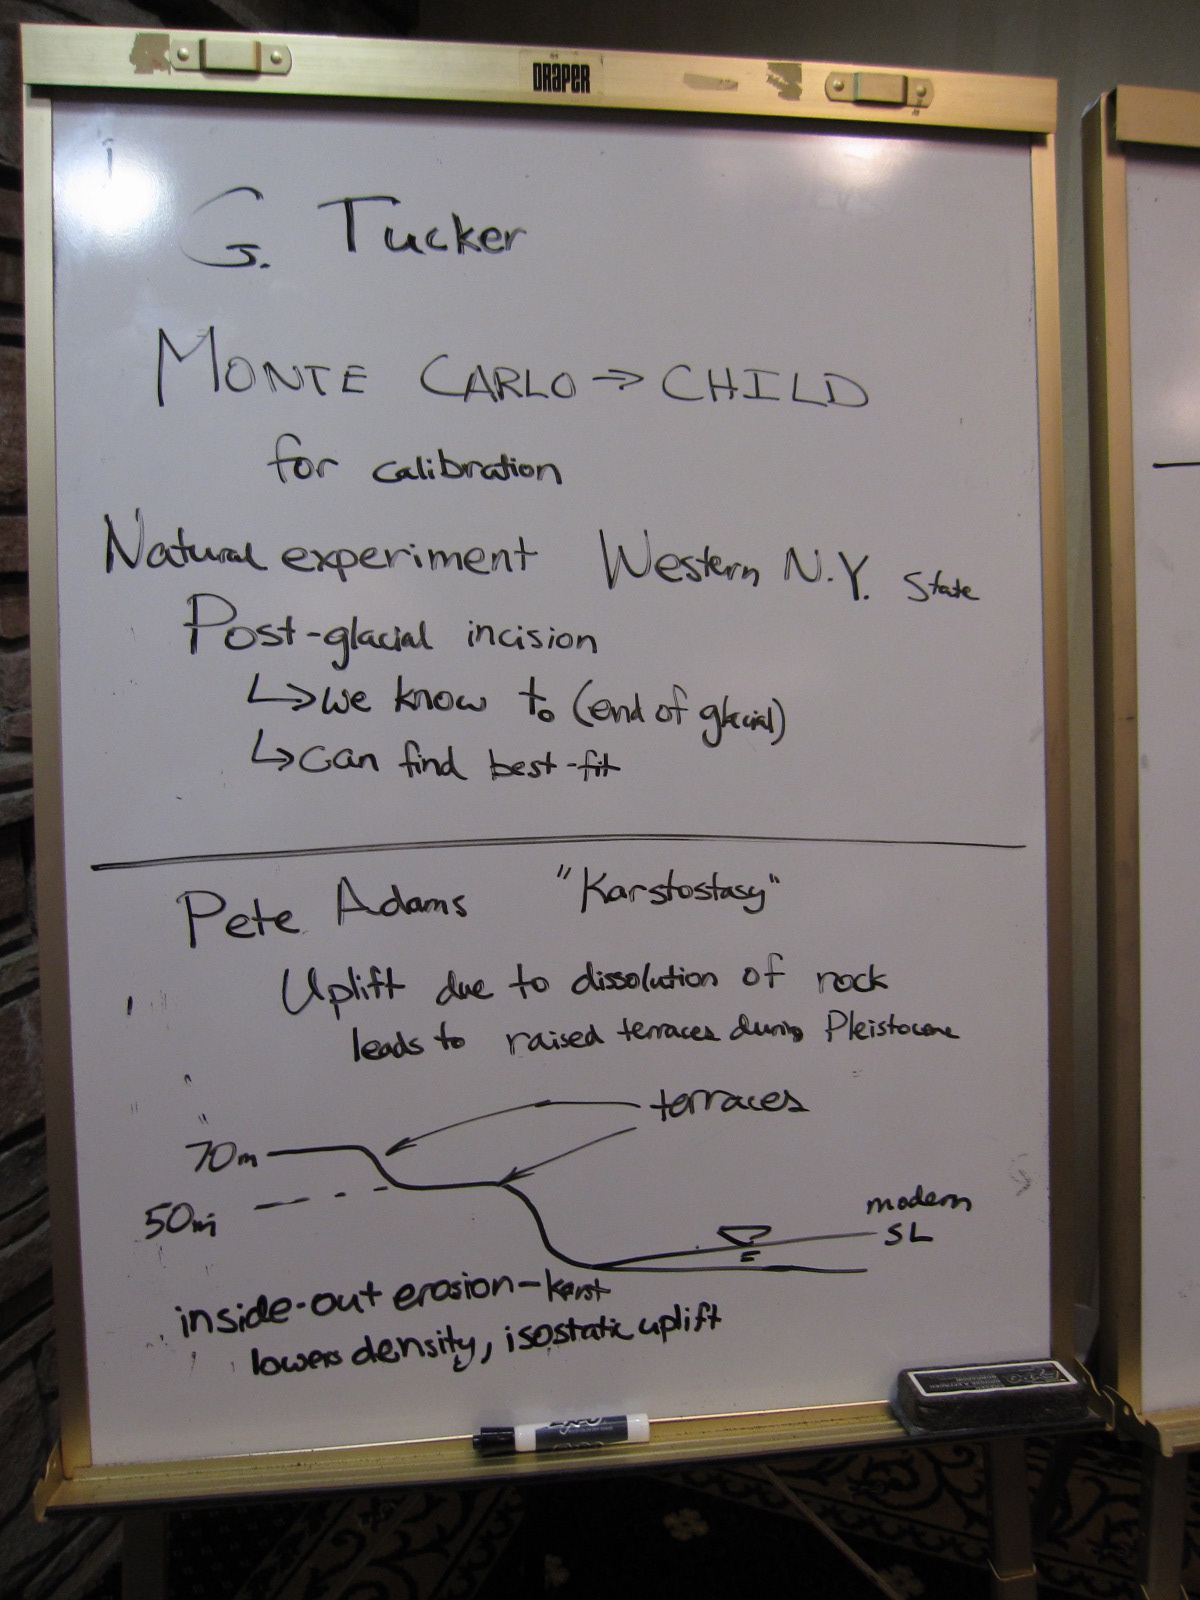 DRAPER
G. Tucker
MONTE CARLO → CHILD
for calibration
Natural experiment Western N.Y. State
Post-glacial incision
↳ we know t₀ (end of glacial)
↳ can find best-fit
Pete Adams "Karstostasy"
Uplift due to dissolution of rock
leads to raised terraces during Pleistocene
terraces
70m
50m
modern
SL
inside-out erosion - karst
lowers density, isostatic uplift
EXPO